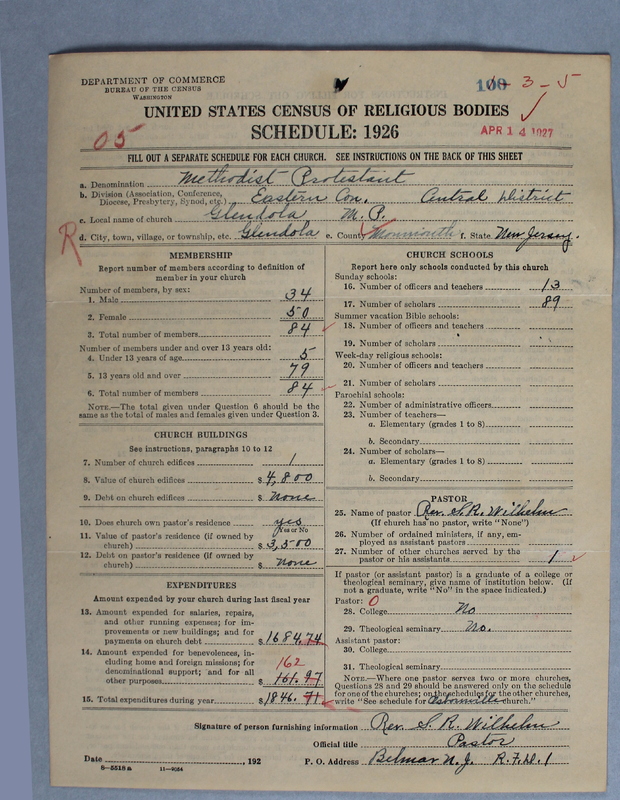 DEPARTMENT OF COMMERCE
BUREAU OF THE CENSUS
WASHINGTON
100 3-5
UNITED STATES CENSUS OF RELIGIOUS BODIES
SCHEDULE: 1926
05
APR 14 1927
FILL OUT A SEPARATE SCHEDULE FOR EACH CHURCH. SEE INSTRUCTIONS ON THE BACK OF THIS SHEET
a. Denomination Methodist Protestant
b. Division (Association, Conference, Diocese, Presbytery, Synod, etc.) Eastern Con. Central District
c. Local name of church Glendola M. P.
R
d. City, town, village, or township, etc. Glendola e. County Monmouth f. State New Jersey.
MEMBERSHIP
Report number of members according to definition of
member in your church
Number of members, by sex:
1. Male 34
2. Female 50
3. Total number of members 84
Number of members under and over 13 years old:
4. Under 13 years of age 5
5. 13 years old and over 79
6. Total number of members 84
NOTE.—The total given under Question 6 should be the
same as the total of males and females given under Question 3.
CHURCH BUILDINGS
See instructions, paragraphs 10 to 12
7. Number of church edifices 1
8. Value of church edifices $ 4,800
9. Debt on church edifices $ none
10. Does church own pastor's residence yes
Yes or No
11. Value of pastor's residence (if owned by
church) $ 3,500
12. Debt on pastor's residence (if owned by
church) $ none
EXPENDITURES
Amount expended by your church during last fiscal year
13. Amount expended for salaries, repairs,
and other running expenses; for im-
provements or new buildings; and for
payments on church debt $ 1684.74
14. Amount expended for benevolences, in-
cluding home and foreign missions; for
denominational support; and for all
other purposes $ 161.97
162
15. Total expenditures during year $ 1846.71
CHURCH SCHOOLS
Report here only schools conducted by this church
Sunday schools:
16. Number of officers and teachers 13
17. Number of scholars 89
Summer vacation Bible schools:
18. Number of officers and teachers
19. Number of scholars
Week-day religious schools:
20. Number of officers and teachers
21. Number of scholars
Parochial schools:
22. Number of administrative officers
23. Number of teachers—
a. Elementary (grades 1 to 8)
b. Secondary
24. Number of scholars—
a. Elementary (grades 1 to 8)
b. Secondary
PASTOR
25. Name of pastor Rev. S. R. Wilhelm
(If church has no pastor, write "None")
26. Number of ordained ministers, if any, em-
ployed as assistant pastors
27. Number of other churches served by the
pastor or his assistants 1
If pastor (or assistant pastor) is a graduate of a college or
theological seminary, give name of institution below. (If
not a graduate, write "No" in the space indicated.)
Pastor: 0
28. College No
29. Theological seminary No.
Assistant pastor:
30. College
31. Theological seminary
NOTE.—Where one pastor serves two or more churches,
Questions 28 and 29 should be answered only on the schedule
for one of the churches; on the schedules for the other churches,
write "See schedule for Osbornville church."
Signature of person furnishing information Rev. S. R. Wilhelm
Official title Pastor
Date , 192 P. O. Address Belmar N.J. R.F.D. 1
8—5518a 11—9054